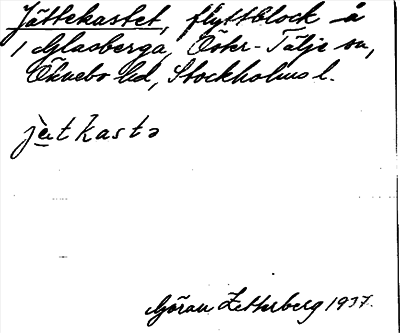 Jättekastet, flyttblock å
1 Glasberga, Öster-Tälje sn,
Öknebo hd, Stockholms l.
Göran Zetterberg 1937.